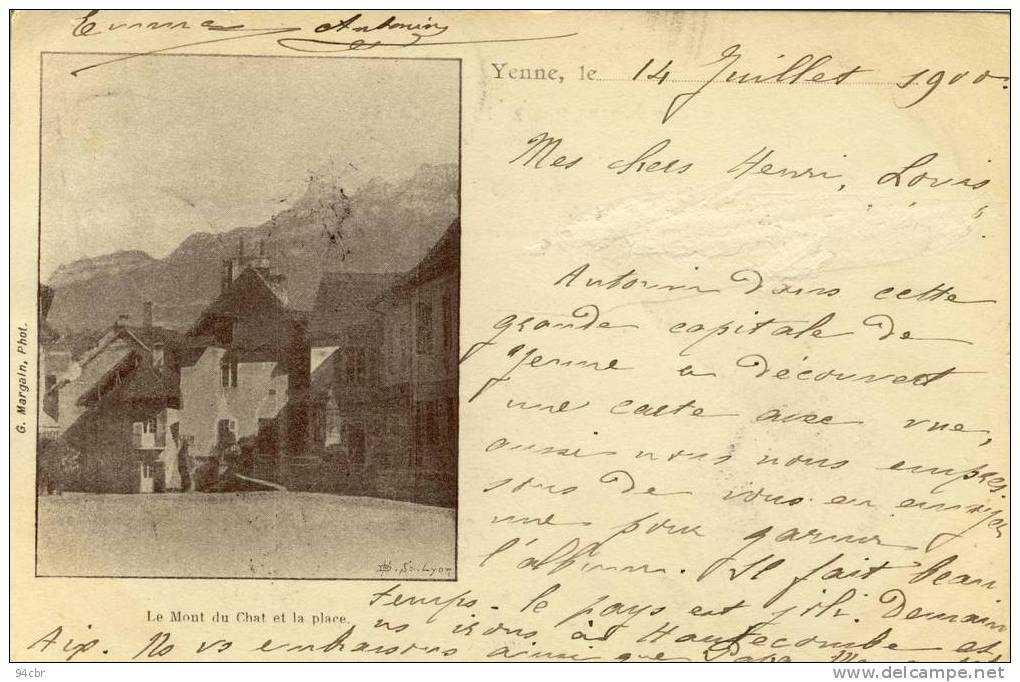 Emma Antonin
Yenne, le 14 Juillet 1900.
Mes chers Henri, Louis,
Antonin dans cette
grande capitale de
Yenne a découvert
une carte avec vue,
aussi nous nous empres
sons de vous en envoyer
une pour garnir
l'album. Il fait beau
temps - le pays est joli. Demain
ns irons à Hautecombe et
Aix. Ns vs embrassons ainsi que Papa
G. Margain, Phot.
Lyon
Le Mont du Chat et la place.
94cbr
www.delcampe.net